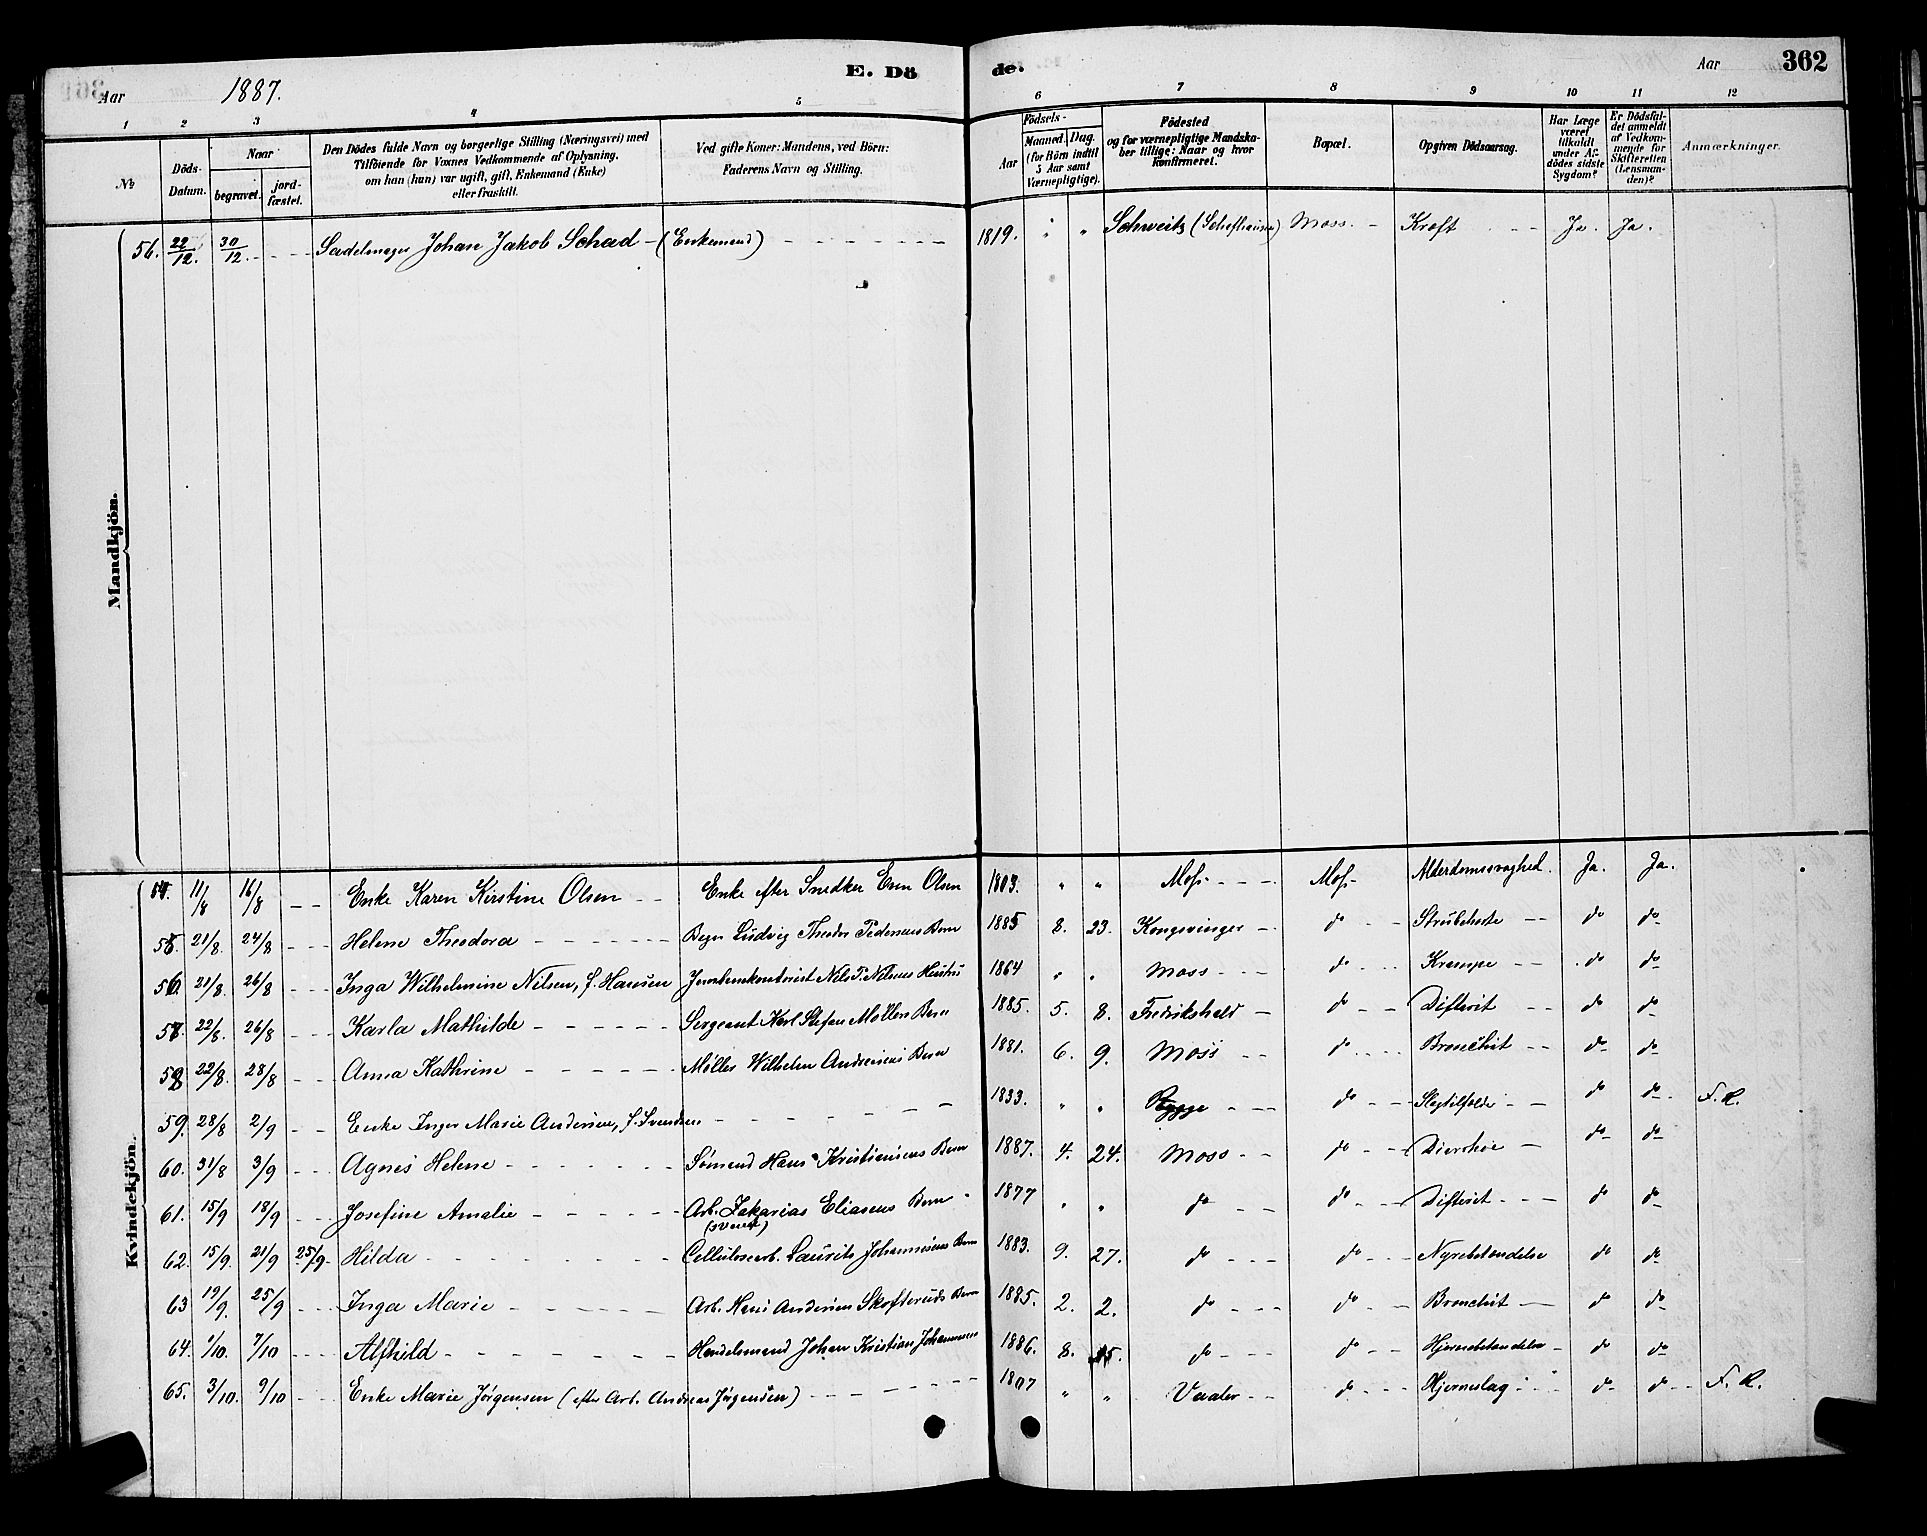 361
Aar 1887. E. Dö de. Aar 362
1 2 3 4 5 6 7 8 9 10 11 12
№ Döds-Datum. Naar begravet. jordfæstet. Den Dödes fulde Navn og borgerlige Stilling (Næringsvei) med Tilföiende for Voxnes Vedkommende af Oplysning, om han (hun) var ugift, gift, Enkemand (Enke) eller fraskilt. Ved gifte Koner: Mandens, ved Börn: Faderens Navn og Stilling. Födsels- Aar Maaned. Dag. (for Börn indtil 5 Aar samt Værnepligtige). Födested og for værnepligtige Mandskaber tillige: Naar og hvor konfirmeret. Bopæl. Opgiven Dödsaarsag. Har Læge været tilkaldt under Afdödes sidste Sygdom? Er Dödsfaldet anmeldt af Vedkommende for Skifteretten (Lensmanden)? Anmærkninger.
Mandkjön.
56. 22/12. 30/12. - - Sadelmager Johan Jakob Schad - (Enkemand) - - - 1819. " " Schweitz Moss. - Kræft - - Ja. Ja.
Kvindekjön.
54. 11/8 16/8 - - Enke Karen Kirstine Olsen - - Enke efter Snedker Even Olsen 1803. " " Moss - - - Moss - Alderdomssvaghed. Ja. Ja.
55. 21/8. 24/8 - - - Helene Theodora - - - Bager Ludvig Theodor Pedersens Barn 1885 8. 23. Kongsvinger - do - Strubehoste - - do do
56. 21/8. 26/8 - - - Inga Wilhelmine Nilsen, f. Hansen Jernbanekontorist Nils P. Nilsens Hustru 1864 " " Moss - - - do - - Krampe - - do do
57. 22/8. 26/8 - - - Karla Mathilde - - - Sergeant Karl Stefan Mollers Barn 1885. 5. 8. Fredrikshald - do - - Difterit - - do do
58. 22/8. 28/8 - - Anna Kathrine - - - Møller Wilhelm Andersens Barn 1881. 6. 9. Moss - - do - - Bronchit - - do do
59. 28/8 2/9 - - Enke Inger Marie Andersen, f. Svendsen - - - 1833. " " Rygge - - - do - - Slagtilfælde - - do do - F. K.
60. 31/8 3/9 - - Agnes Helene - - - Sømand Hans Kristiansens Barn 1887. 4. 24. Moss - - do - - Diarrhoe - do do
61. 15/9 18/9 - - Josefine Amalie - - - Arb. Zakarias Eliasens Barn 1877 " " do - - do - - Difterit - - - do do
62. 15/9. 21/9 25/9 - Hilda - - - Cellulosearb. Laurits Johannesens Barn 1883. 9. 27. do - - - do - - Nyrebetændelse do do
63 19/9. 25/9 - - - Inga Marie - - - Arb. Hans Andersen Skofteruds Barn 1885. 2. 2. do - - - do - - Bronchit - do do
64. 1/10. 7/10 - - - Alfhild - - - Handelsmand Johan Kristian Johannesen 1886. 8. 15. do - - - do - - Hjernebetændelse - do do
65. 3/10. 9/10 - - Enke Marie Jørgensen (efter Arb. Andreas Jørgensen) - - - 1807 " " Vaaler - - do - - Hjerneslag - - do do - - F. K.